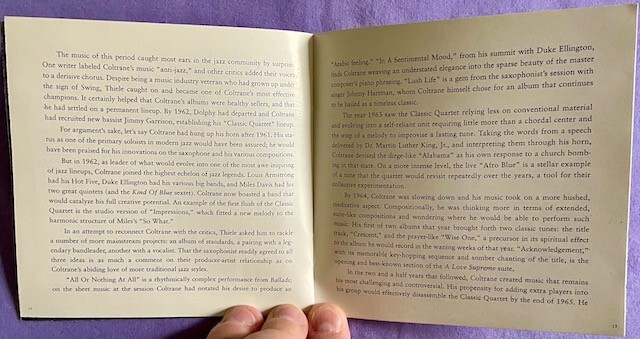 The music of this period caught most ears in the jazz community by surprise.
One writer labeled Coltrane's music "anti-jazz," and other critics added their voices
to a derisive chorus. Despite being a music industry veteran who had grown up under
the sign of Swing, Thiele caught on and became one of Coltrane's most effective
champions. It certainly helped that Coltrane's albums were healthy sellers, and that
he had settled on a permanent lineup. By 1962, Dolphy had departed and Coltrane
had recruited new bassist Jimmy Garrison, establishing his "Classic Quartet" lineup.
For argument's sake, let's say Coltrane had hung up his horn after 1961. His sta-
tus as one of the primary soloists in modern jazz would have been assured; he would
have been praised for his innovations on the saxophone and his various compositions.
But in 1962, as leader of what would evolve into one of the most awe-inspiring
of jazz lineups, Coltrane joined the highest echelon of jazz legends. Louis Armstrong
had his Hot Five, Duke Ellington had his various big bands, and Miles Davis had his
two great quintets (and the Kind Of Blue sextet). Coltrane now boasted a band that
would catalyze his full creative potential. An example of the first flush of the Classic
Quartet is the studio version of "Impressions," which fitted a new melody to the
harmonic structure of Miles's "So What."
In an attempt to reconnect Coltrane with the critics, Thiele asked him to tackle
a number of more mainstream projects: an album of standards, a pairing with a leg-
endary bandleader, another with a vocalist. That the saxophonist readily agreed to all
three ideas is as much a comment on their producer-artist relationship as on
Coltrane's abiding love of more traditional jazz styles.
"All Or Nothing At All" is a rhythmically complex performance from Ballads;
on the sheet music at the session Coltrane had notated his desire to produce an
"Arabic feeling." "In A Sentimental Mood," from his summit with Duke Ellington,
finds Coltrane weaving an understated elegance into the sparse beauty of the master
composer's piano phrasing. "Lush Life" is a gem from the saxophonist's session with
singer Johnny Hartman, whom Coltrane himself chose for an album that continues
to be hailed as a timeless classic.
The year 1963 saw the Classic Quartet relying less on conventional material
and evolving into a self-reliant unit requiring little more than a chordal center and
the wisp of a melody to improvise a lasting tune. Taking the words from a speech
delivered by Dr. Martin Luther King, Jr., and interpreting them through his horn,
Coltrane devised the dirge-like "Alabama" as his own response to a church bomb-
ing in that state. On a more intense level, the live "Afro Blue" is a stellar example
of a tune that the quartet would revisit repeatedly over the years, a tool for their
collective experimentation.
By 1964, Coltrane was slowing down and his music took on a more hushed,
meditative aspect. Compositionally, he was thinking more in terms of extended,
suite-like compositions and wondering where he would be able to perform such
music. His first of two albums that year brought forth two classic tunes: the title
track, "Crescent," and the prayer-like "Wise One," a precursor in its spiritual effect
to the album he would record in the waning weeks of that year. "Acknowledgement,"
with its memorable key-hopping sequence and somber chanting of the title, is the
opening and best-known section of the A Love Supreme suite.
In the two and a half years that followed, Coltrane created music that remains
his most challenging and controversial. His propensity for adding extra players into
his group would effectively disassemble the Classic Quartet by the end of 1965. He
13